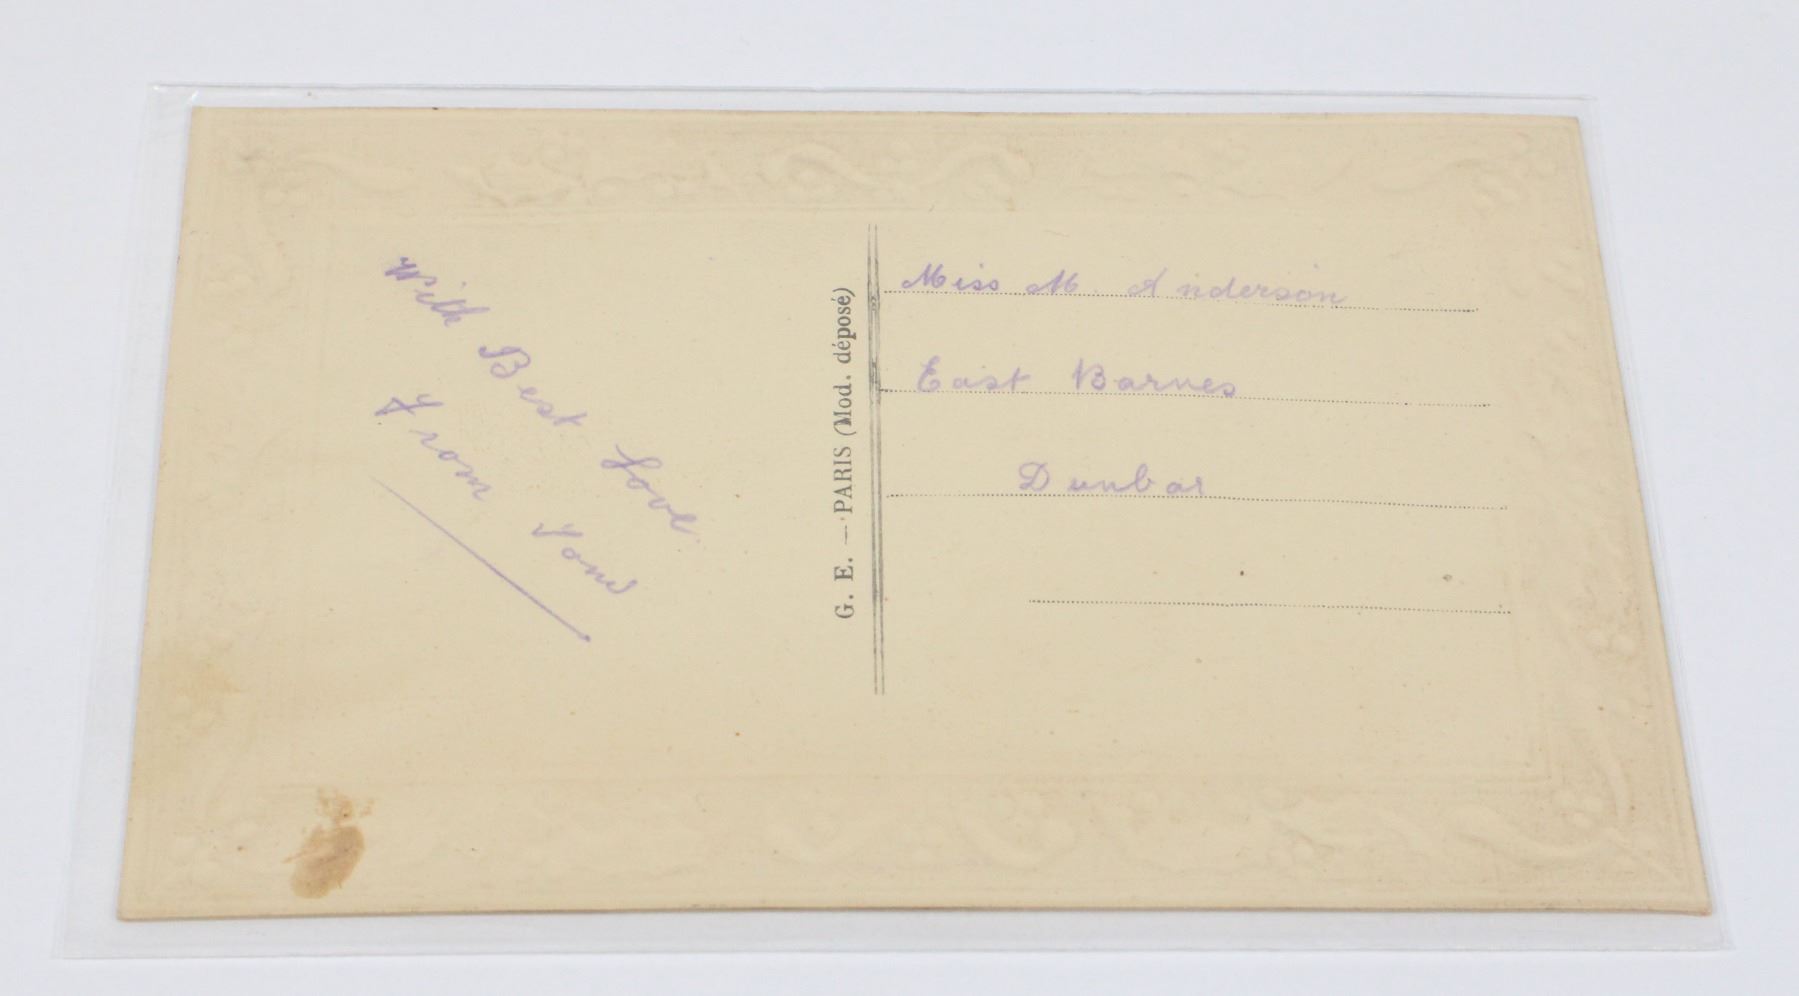 With Best Love
From
G. E. — PARIS (Mod. déposé)
Miss M. Anderson
East Barnes
Dunbar